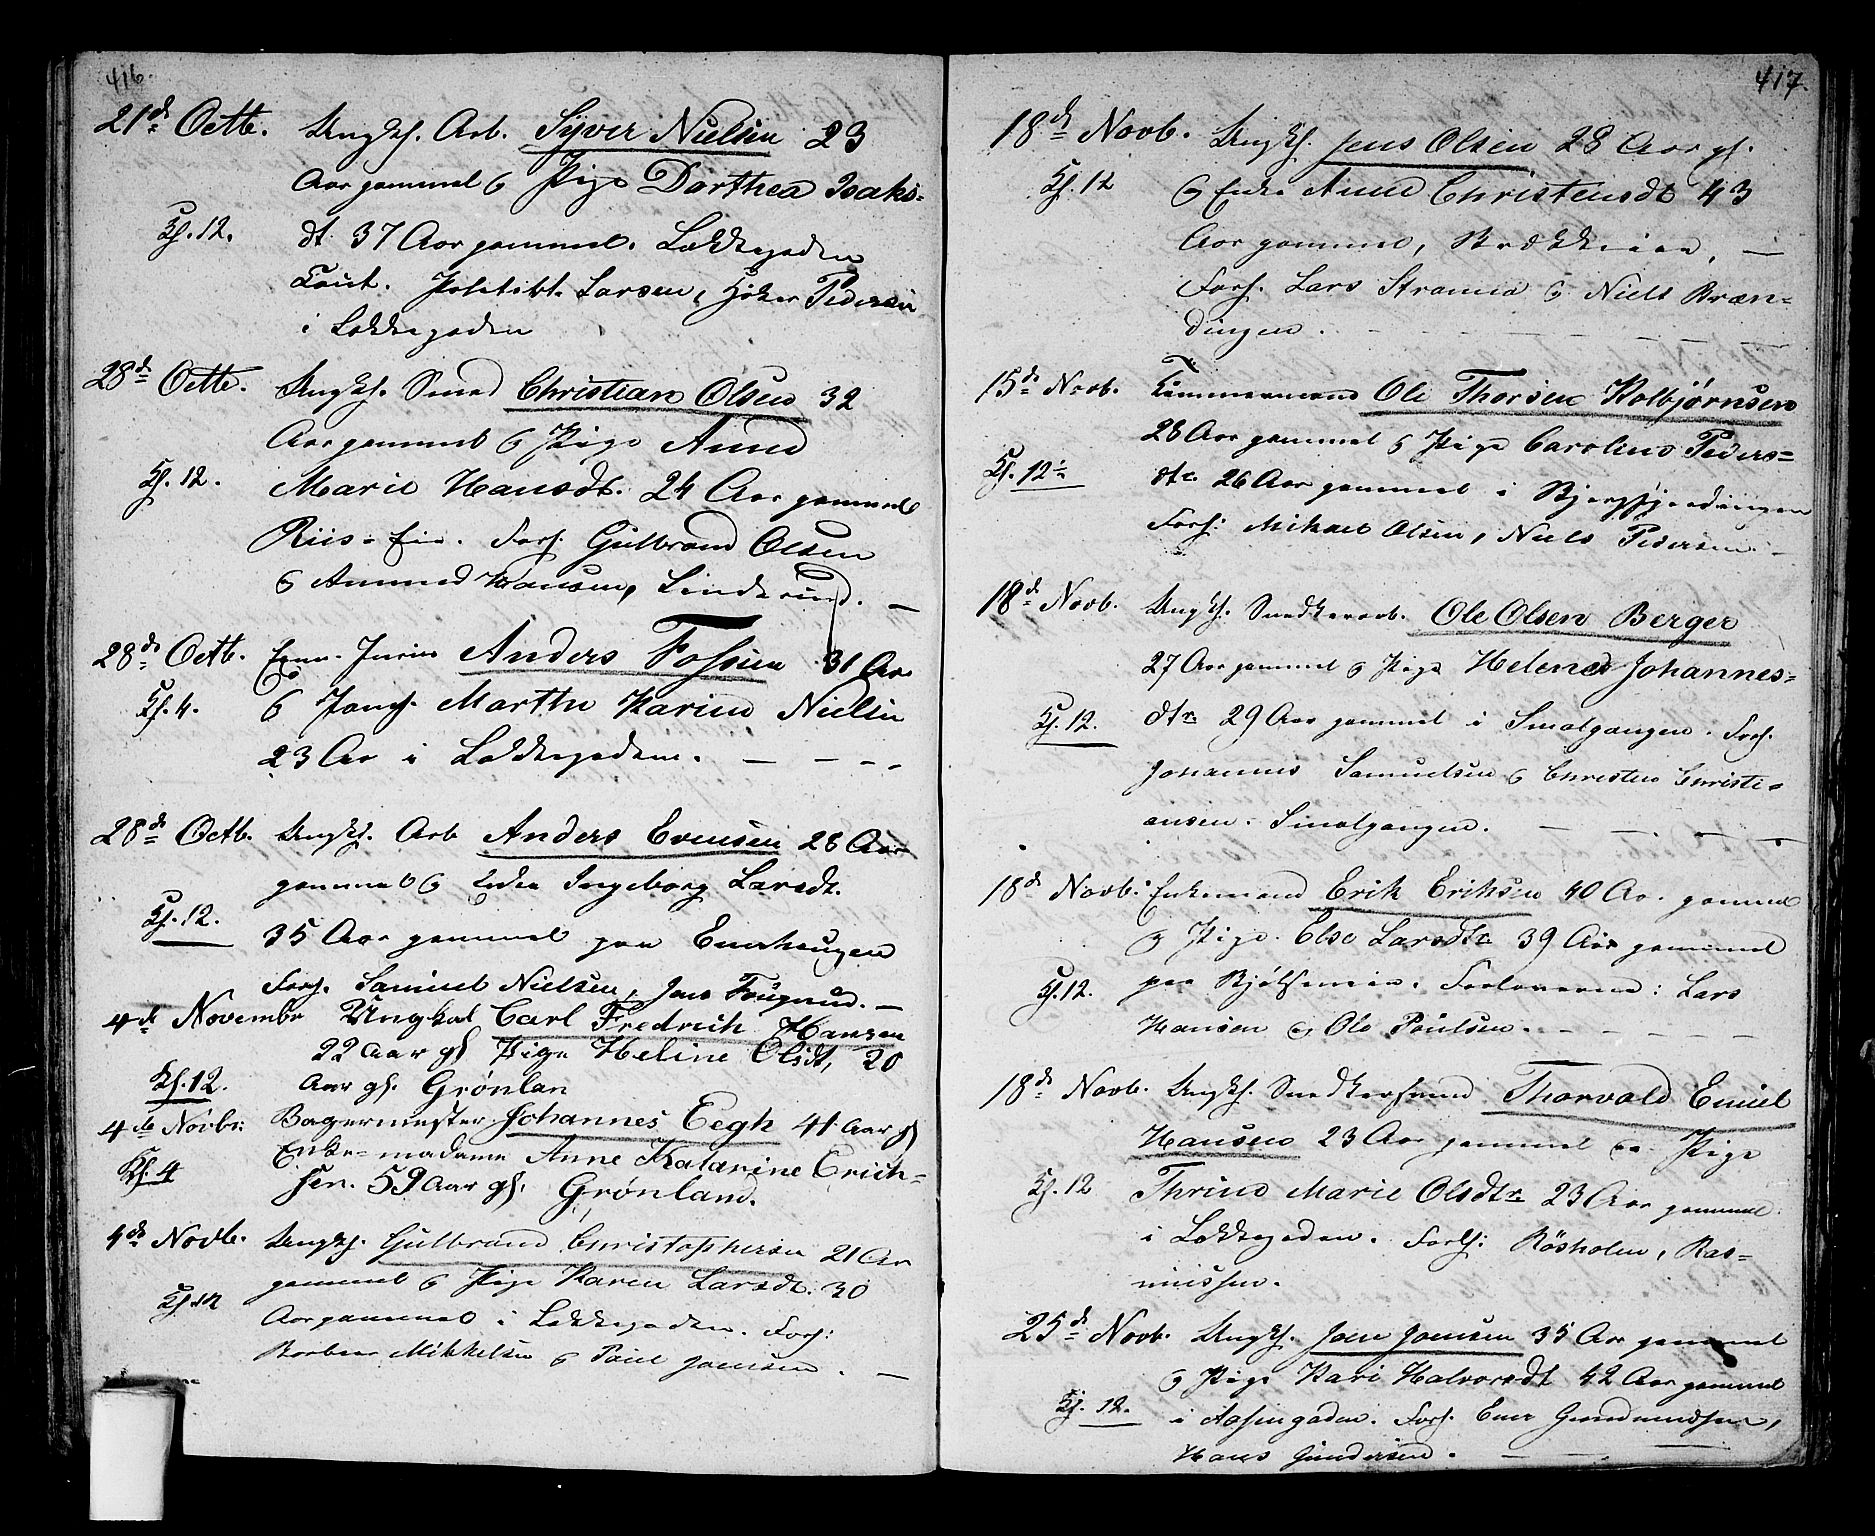 416.
21de Octb. Ungkf. Arb. Syver Nielsen 23
Aar gammel & Pige Dorthea Isaks-
Kl. 12. dt. 37 Aar gammel. Lakkegaden
Caut. Larsen, Høker Pedersen
i Lakkegaden
28de Octb. Ungkf. Smed Christian Olsen 32
Aar gammel & Pige Anne
Kl. 12. Marie Hansdt. 24 Aar gammel
Riis-Eie. Forl. Gulbrand Olsen
& Amund Hansen, Linderud. —
28de Octb. Exam. Juris Anders Fossum 31 Aar
Kl. 4. & Jomf. Marthe Karine Nielsen
23 Aar i Lakkegaden. — — — —
28de Octb. Ungkf. Arb Anders Evensen 28 Aar
gammel & Enke Ingeborg Larsdt.
Kl. 12. 35 Aar gammel paa Enerhaugen
Forl. Samuel Nielsen, Jens Frøgnud. —
4de Novembr Ungkal Carl Fredrich Hansen
22 Aar gl Pige Heline Olsdt, 20
Kl. 12. Aar gl. Grønlan
4de Novbr: Bagermester Johannes Eegh 41 Aar gl
Kl. 4 Enke-madame Anne Katarine Erich-
sen. 59 Aar gl. Grønland.
4de Novb. Ungkf. Gulbrand Christophersen 21 Aar
gammel & Pige Karen Larsdt. 30
Kl. 12 Aar gammel i Lakkegaden. Forl:
Mikkelsen & Paul Jansen. —
417.
18de Novb. Ungkf. Jens Olsen 28 Aar gl.
Kl. 12 & Enke Anne Christensdt 43
Aar gammel, —
Forl. Lars Strømen & Niels Bræn-
dingen. — — — —
15de Novb. Tømmermand Ole Thorsen Kolbjørnsen
28 Aar gammel & Pige Caroline Peders-
Kl. 12½ dtr. 26 Aar gammel i Bjergfjerdingen
Forl: Mikael Olsen, Niels Pedersen —
18de Novb. Ungkf. Snedkerarb. Ole Olsen Berger
27 Aar gammel & Pige Helene Johannes-
Kl. 12. dtr. 29 Aar gammel i Smalgangen. Forl.
Johannes Samuelsen & Christen Christi-
ansen. Smalgangen. — — — —
18de Novb. Enkemand Erik Eriksen 40 Aar gammel
& Pige Else Larsdtr. 39 Aar gammel
Kl. 12. paa Bjølseneie. Forloverne: Lars
Hansen & Ole Paulsen. — — — —
18de Novb. Ungkf. Snedkersvend Thorvald Emiel
Hansen 23 Aar gammel og Pige
Kl. 12 Thrine Marie Olsdtr. 23 Aar gammel
i Lakkegaden. Forl: Røsholm, Ras-
mussen.
25de Novb. Ungkf. Jens Jansen 35 Aar gammel
& Pige Kari Halvorsdt 42 Aar gammel
Kl. 12. i Aasengaden. Forl. Ener Gundmundsen,
Hans Gundersen. — — —